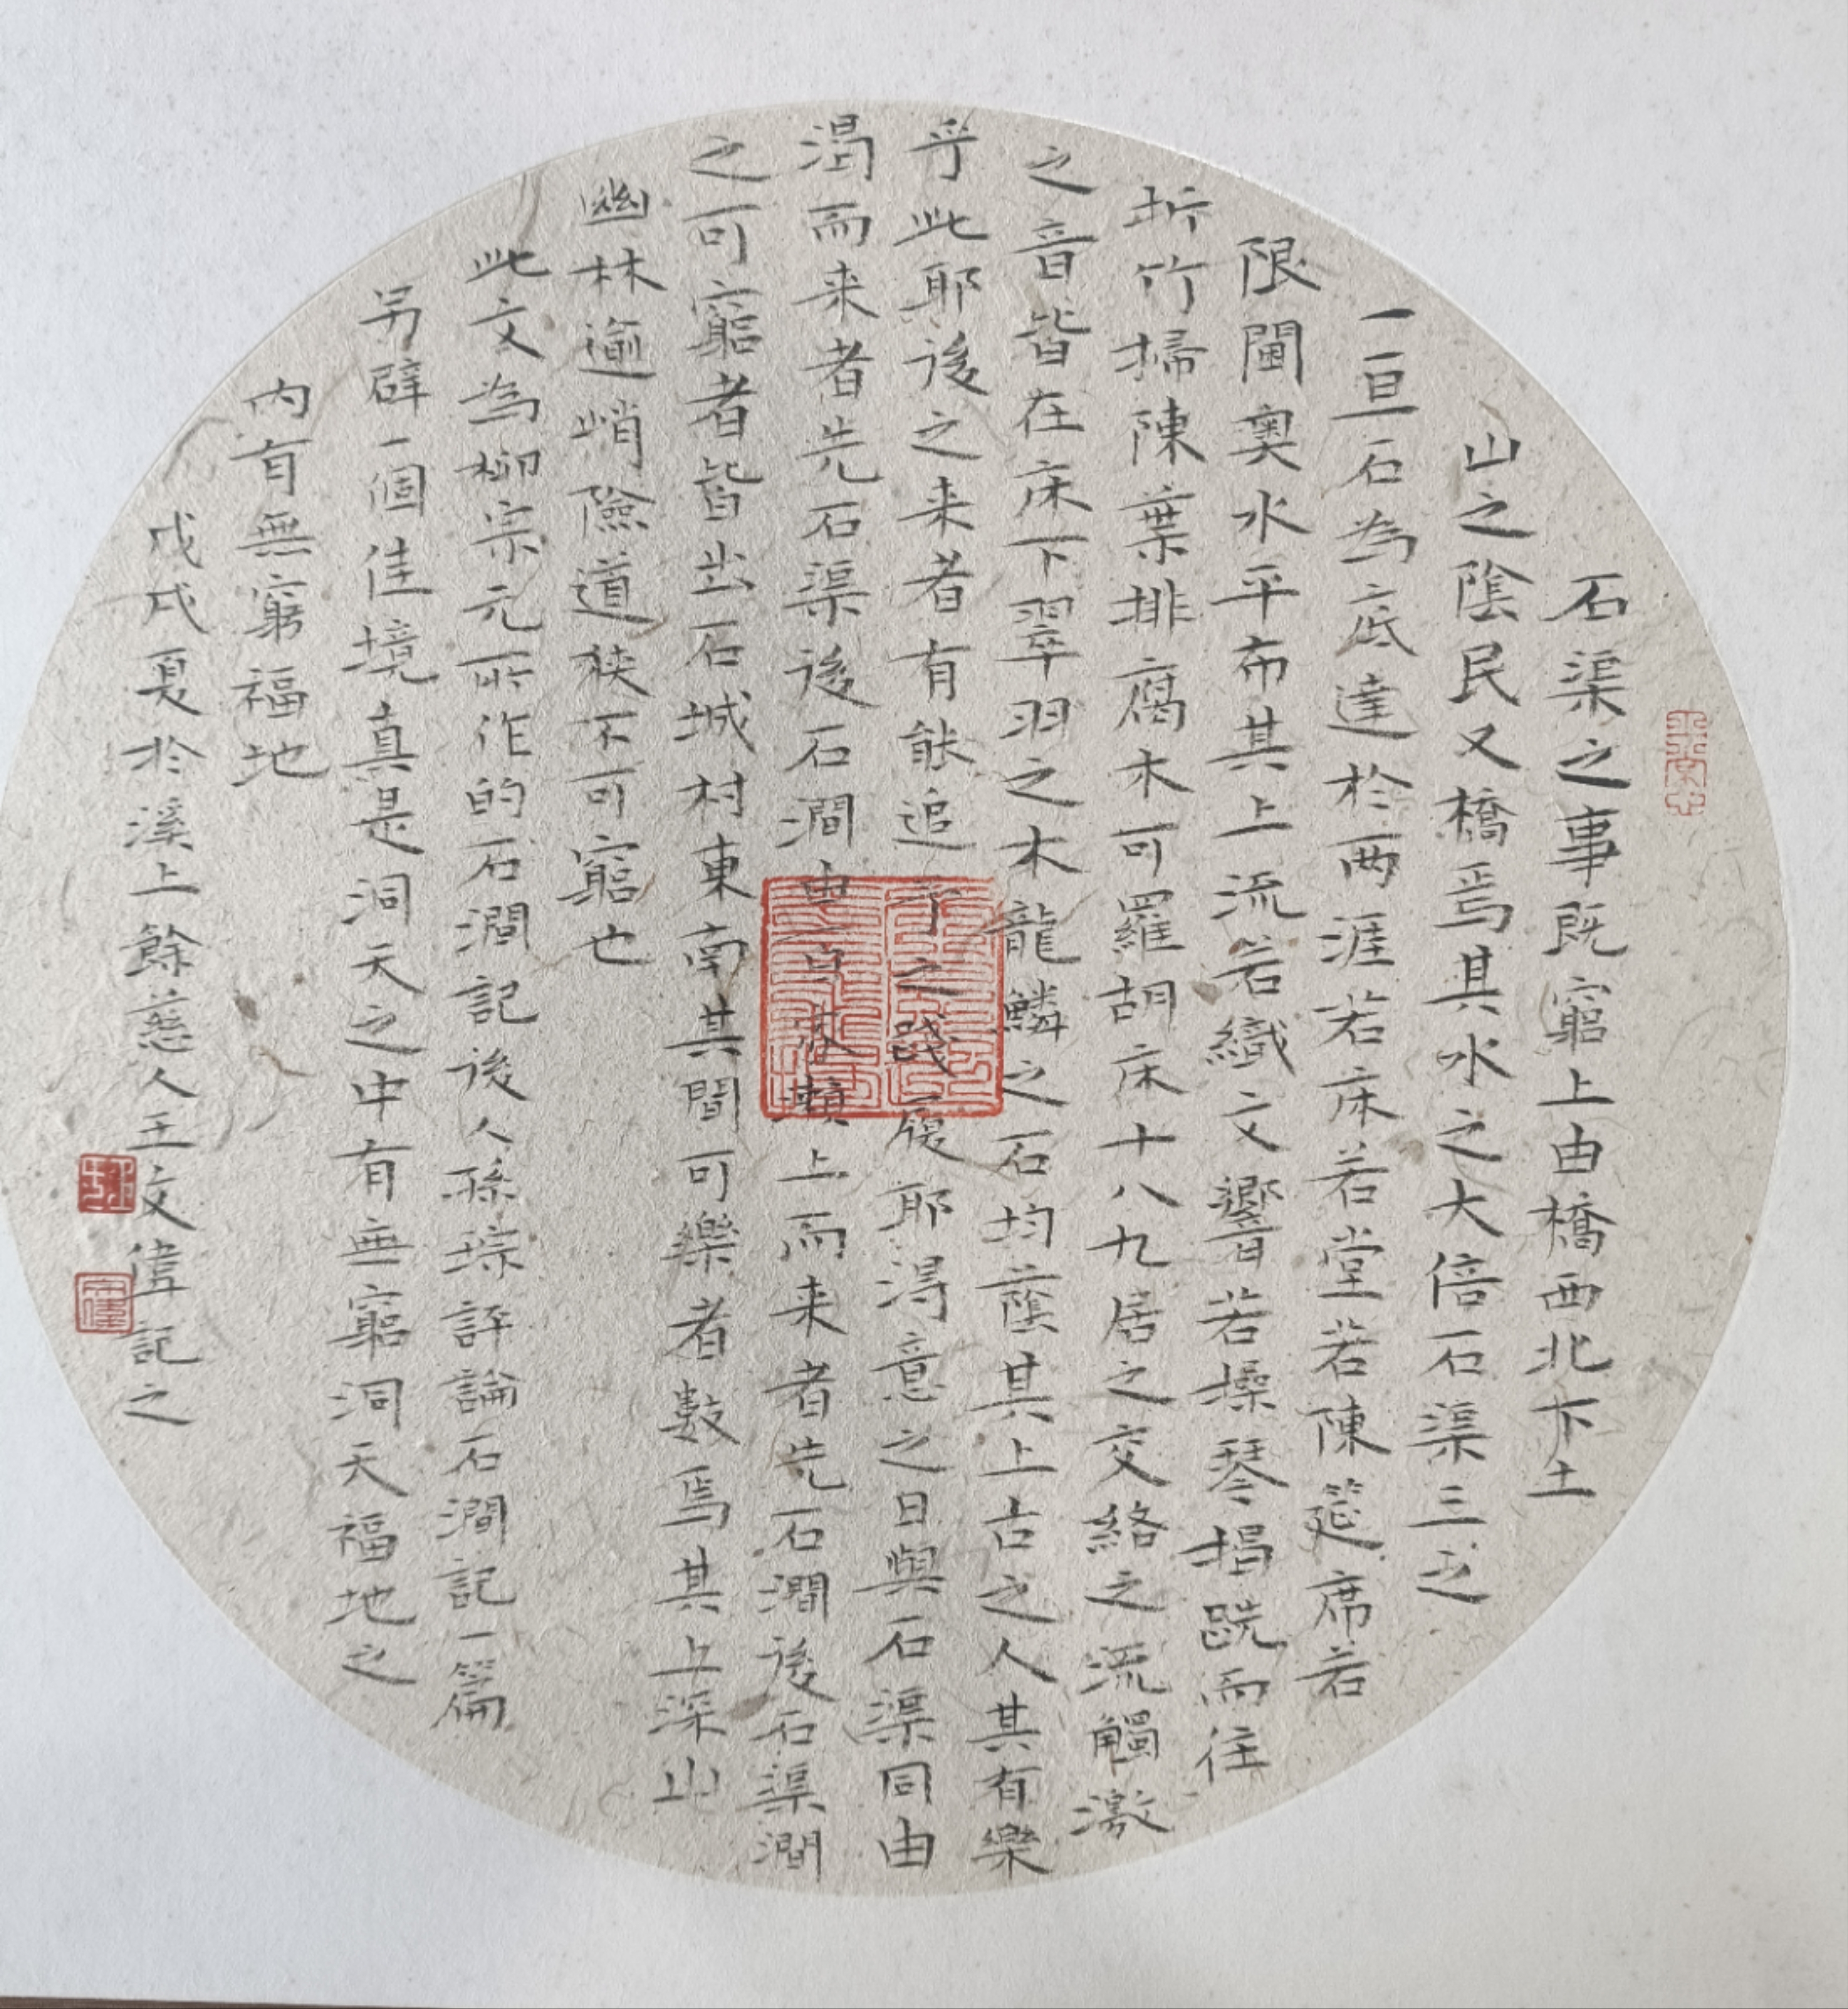 石渠之事既窮上由橋西北下土
山之陰民又橋焉其水之大倍石渠三之
一亘石為底達於兩涯若床若堂若陳筵席若
限閫奧水平布其上流若織文響若操琴揭跣而往
折竹掃陳葉排腐木可羅胡床十八九居之交絡之流觸激
之音皆在床下翠羽之木龍鱗之石均蔭其上古之人其有樂
乎此耶後之来者有能追予之踐履耶得意之日與石渠同由
渴而来者先石渠後石澗由百家瀨上而来者先石澗後石渠澗
之可窮者皆出石城村東南其間可樂者數焉其上深山
幽林逾峭險道狹不可窮也
此文為柳宗元所作的石澗記後人孫琮評論石澗記一篇
另辟一個佳境真是洞天之中有無窮洞天福地之
內有無窮福地
戊戌夏於溪上餘慈人王文偉記之